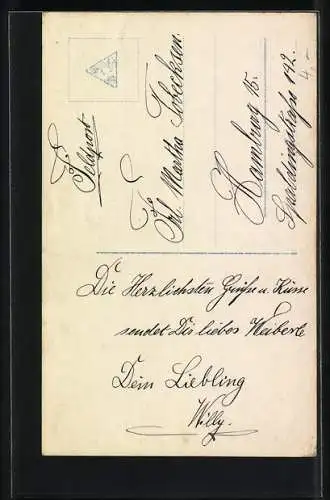 Feldpost
Frl. Martha Tobecksen.
Hamburg 15.
Spaldingstraße 192.
4,-
Die Herzlichsten Grüße u. Küsse
sendet Dir liebes Weiberle
Dein Liebling
Willy.